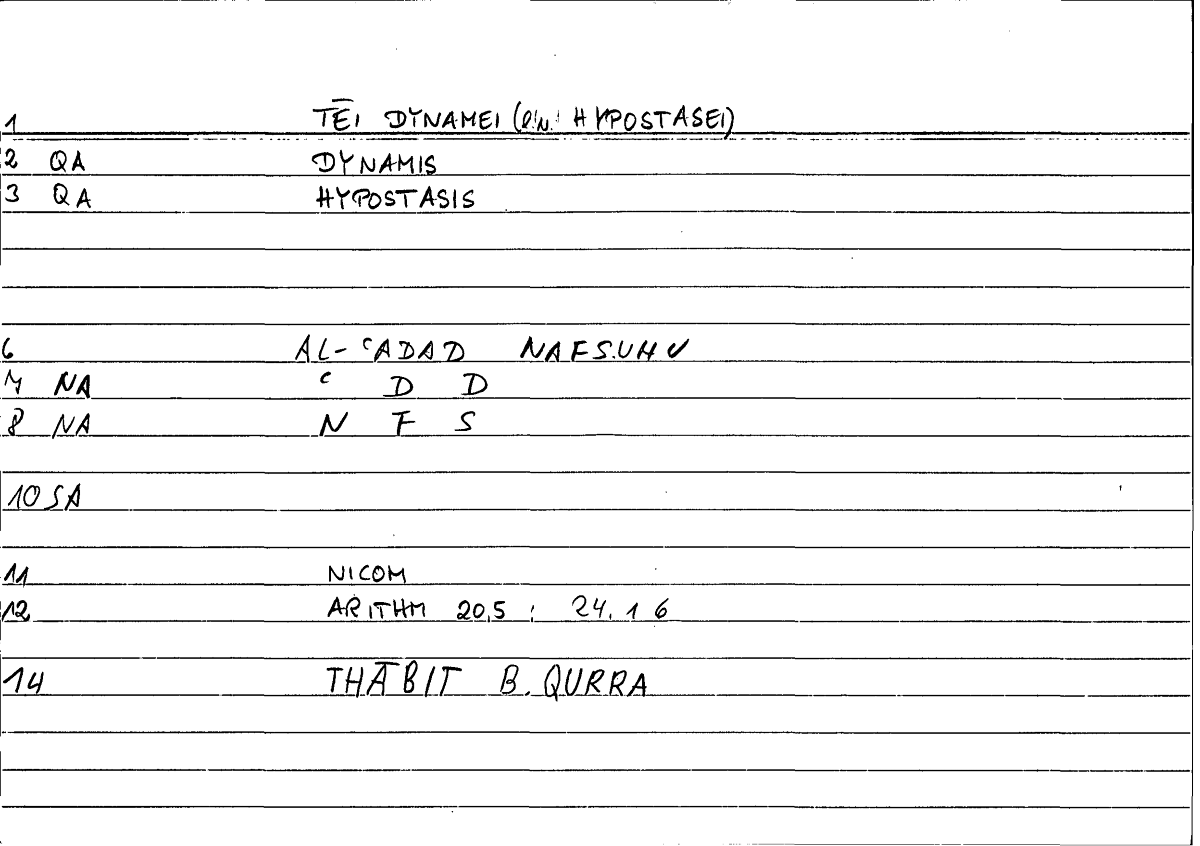 1 TĒI DYNAMEI ( HYPOSTASEI)
2 QA DYNAMIS
3 QA HYPOSTASIS
6 AL-ʿADAD NAFSUHU
7 NA ʿ D D
8 NA N F S
10 SA
11 NICOM
12 ARITHM 20,5 ; 24.16
14 THĀBIT B. QURRA